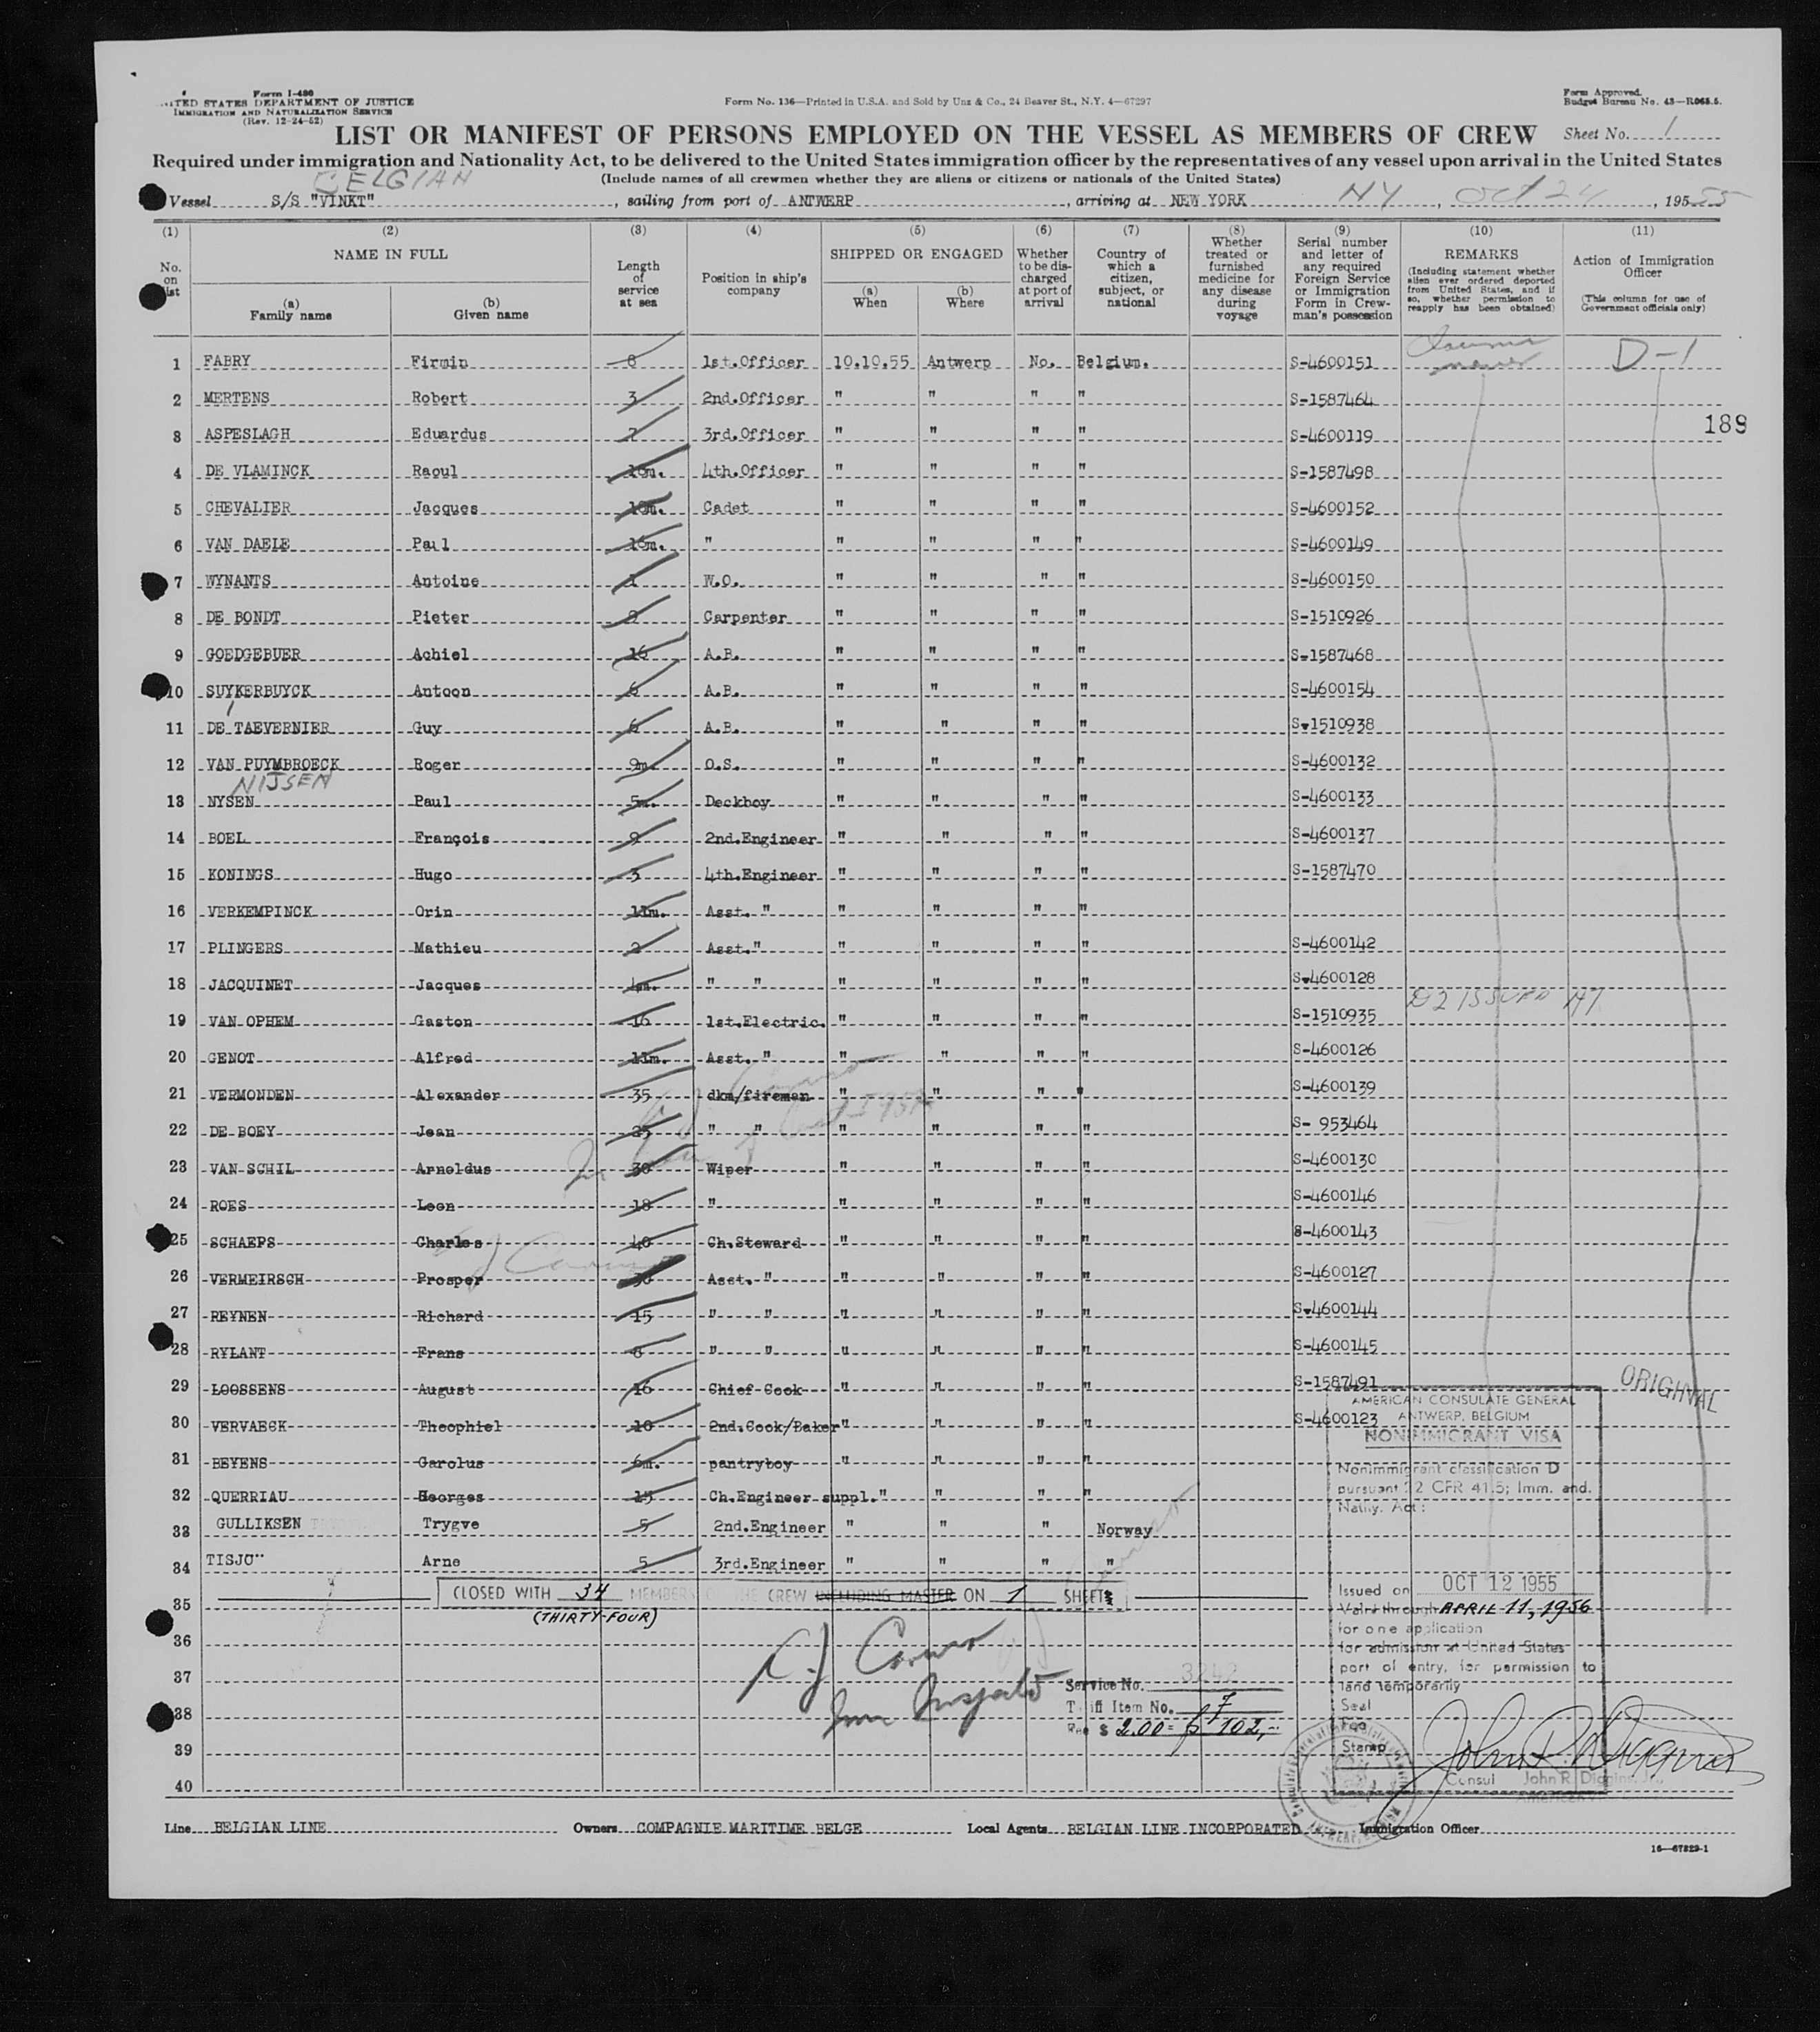 Form I-480
UNITED STATES DEPARTMENT OF JUSTICE
IMMIGRATION AND NATURALIZATION SERVICE
(Rev. 12-24-52)
Form No. 136—Printed in U.S.A. and Sold by Unz & Co., 24 Beaver St., N.Y. 4—67297
Form Approved.
Budget Bureau No. 43-R065.5.
LIST OR MANIFEST OF PERSONS EMPLOYED ON THE VESSEL AS MEMBERS OF CREW Sheet No. 1
Required under immigration and Nationality Act, to be delivered to the United States immigration officer by the representatives of any vessel upon arrival in the United States
(Include names of all crewmen whether they are aliens or citizens or nationals of the United States)
BELGIAN
Vessel S/S "VINKT", sailing from port of ANTWERP, arriving at NEW YORK NY, Oct 24, 195 55
(1) No. on list
(2) NAME IN FULL (a) Family name (b) Given name
(3) Length of service at sea
(4) Position in ship's company
(5) SHIPPED OR ENGAGED (a) When (b) Where
(6) Whether to be discharged at port of arrival
(7) Country of which a citizen, subject, or national
(8) Whether treated or furnished medicine for any disease during voyage
(9) Serial number and letter of any required Foreign Service or Immigration Form in Crewman's possession
(10) REMARKS (Including statement whether alien ever ordered deported from United States, and if so, whether permission to reapply has been obtained)
(11) Action of Immigration Officer (This column for use of Government officials only)
1 FABRY Firmin 8 1st.Officer 10.10.55 Antwerp No. Belgium. S-4600151 D-1
2 MERTENS Robert 3 2nd.Officer " " " " S-1587464
189
3 ASPESLAGH Eduardus 7 3rd.Officer " " " " S-4600119
4 DE VLAMINCK Raoul 18m. 4th.Officer " " " " S-1587498
5 CHEVALIER Jacques 18m. Cadet " " " " S-4600152
6 VAN DAELE Paul 16m. " " " " " S-4600149
7 WYNANTS Antoine 1 W.O. " " " " S-4600150
8 DE BONDT Pieter 8 Carpenter " " " " S-1510926
9 GOEDGEBUER Achiel 16 A.B. " " " " S-1587468
10 SUYKERBUYCK Antoon 6 A.B. " " " " S-4600154
11 DE TAEVERNIER Guy 6 A.B. " " " " S-1510938
12 VAN PUYMBROECK Roger 9m. O.S. " " " " S-4600132
NIJSEN
13 NYSEN Paul 5m. Deckboy " " " " S-4600133
14 BOEL François 9 2nd.Engineer " " " " S-4600137
15 KONINGS Hugo 3 4th.Engineer " " " " S-1587470
16 VERKEMPINCK Orin 11m. Asst. " " " " "
17 PLINGERS Mathieu 2 Asst." " " " " S-4600142
18 JACQUINET Jacques 4m. " " " " " " S-4600128
ISSUED
19 VAN OPHEM Gaston 16 1st.Electric. " " " " S-1510935
20 GENOT Alfred 11m. Asst. " " " " " S-4600126
21 VERMONDEN Alexander 35 dkm/fireman " " " " S-4600139
22 DE BOEY Jean 25 " " " " " " S- 953464
23 VAN SCHIL Arnoldus 30 Wiper " " " " S-4600130
24 ROES Leon 18 " " " " " S-4600146
25 SCHAEPS Charles 40 Ch.Steward " " " " S-4600143
26 VERMEIRSCH Prosper 30 Asst. " " " " " S-4600127
27 REYNEN Richard 15 " " " " " " S-4600144
28 RYLANT Frans 8 " " " " " " S-4600145
29 LOOSSENS August 16 Chief Cook " " " " S-1587491
30 VERVAECK Theophiel 10 2nd.Cook/Baker " " " " S-4600123
31 BEYENS Carolus 6m. pantryboy " " " "
32 QUERRIAU Georges 15 Ch.Engineer suppl. " " " "
33 GULLIKSEN Trygve 5 2nd.Engineer " " " Norway
34 TISJO¨ Arne 5 3rd.Engineer " " " "
35 CLOSED WITH 34 MEMBERS OF THE CREW INCLUDING MASTER ON 1 SHEETS
(THIRTY-FOUR)
36
37
38
39
40
ORIGINAL
AMERICAN CONSULATE GENERAL
ANTWERP, BELGIUM
NONIMMIGRANT VISA
Nonimmigrant classification D
pursuant 22 CFR 41.5; Imm. and.
Natlty. Act:
Issued on OCT 12 1955
Valid through APRIL 11, 1956
for one application
for admission at United States
port of entry, for permission to
land temporarily
Seal
Fee
Stamp
Consul John R. Diggins, Jr.,
Service No. 3242
Tariff Item No. 7
Fee $ 2.00 = 102,-
Line BELGIAN LINE Owners COMPAGNIE MARITIME BELGE Local Agents BELGIAN LINE INCORPORATED Immigration Officer
16—67329-1